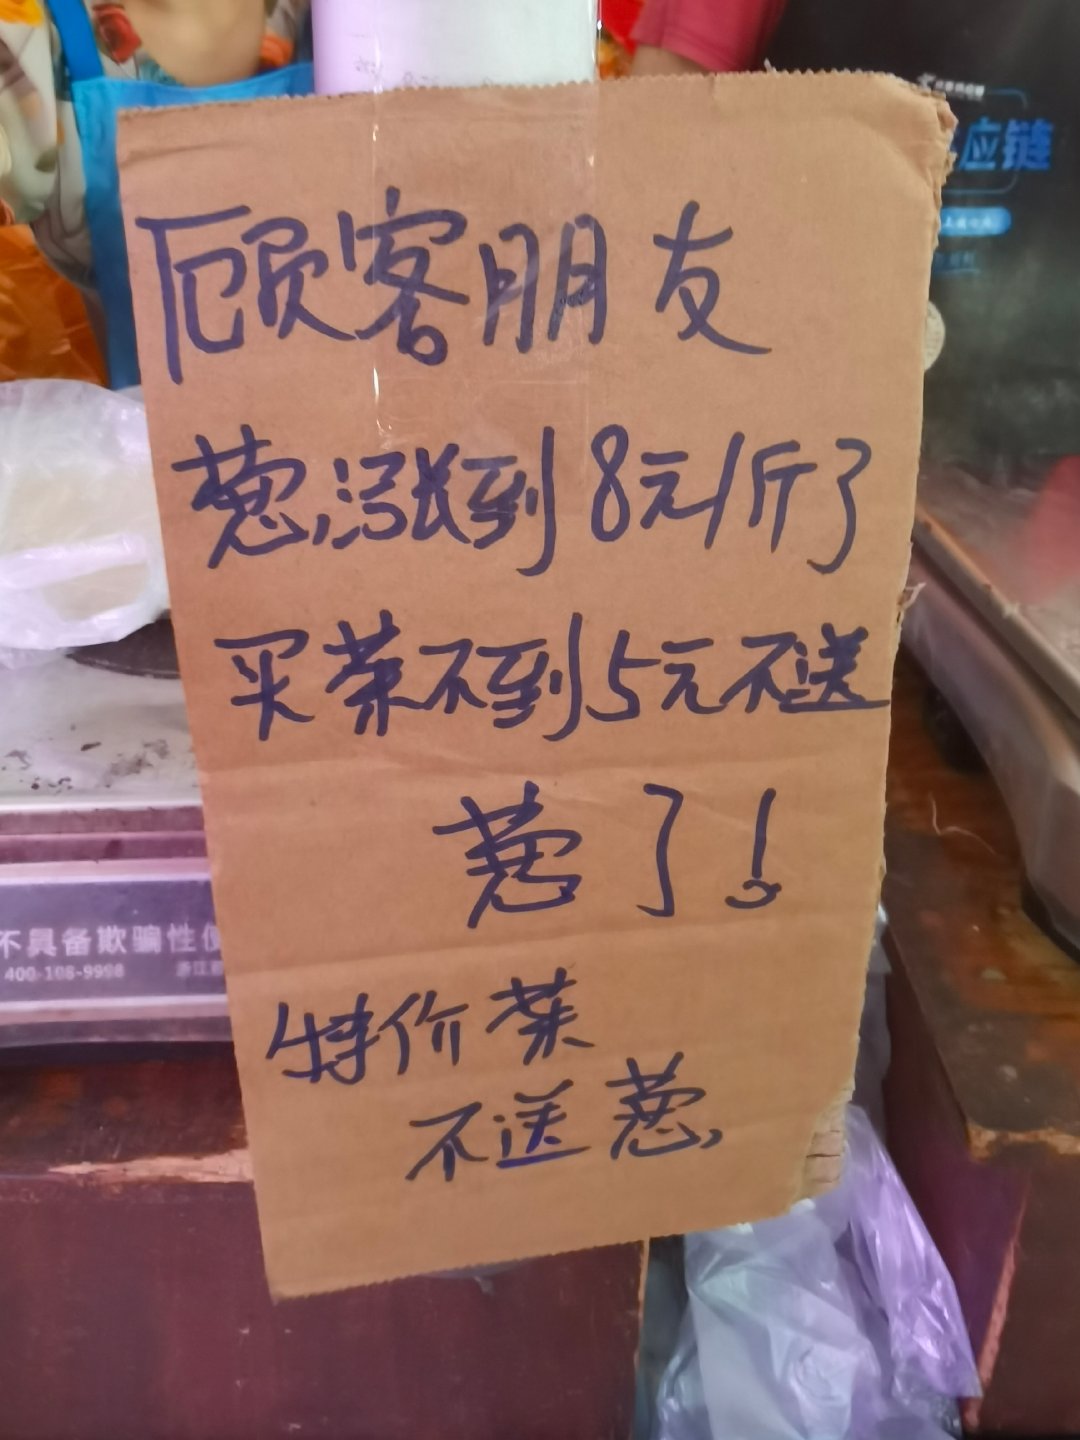 顾客朋友
葱涨到8元/斤了
买菜不到5元不送
葱了!
特价菜
不送葱
应链
不具备欺骗性
400-108-9998
浙江